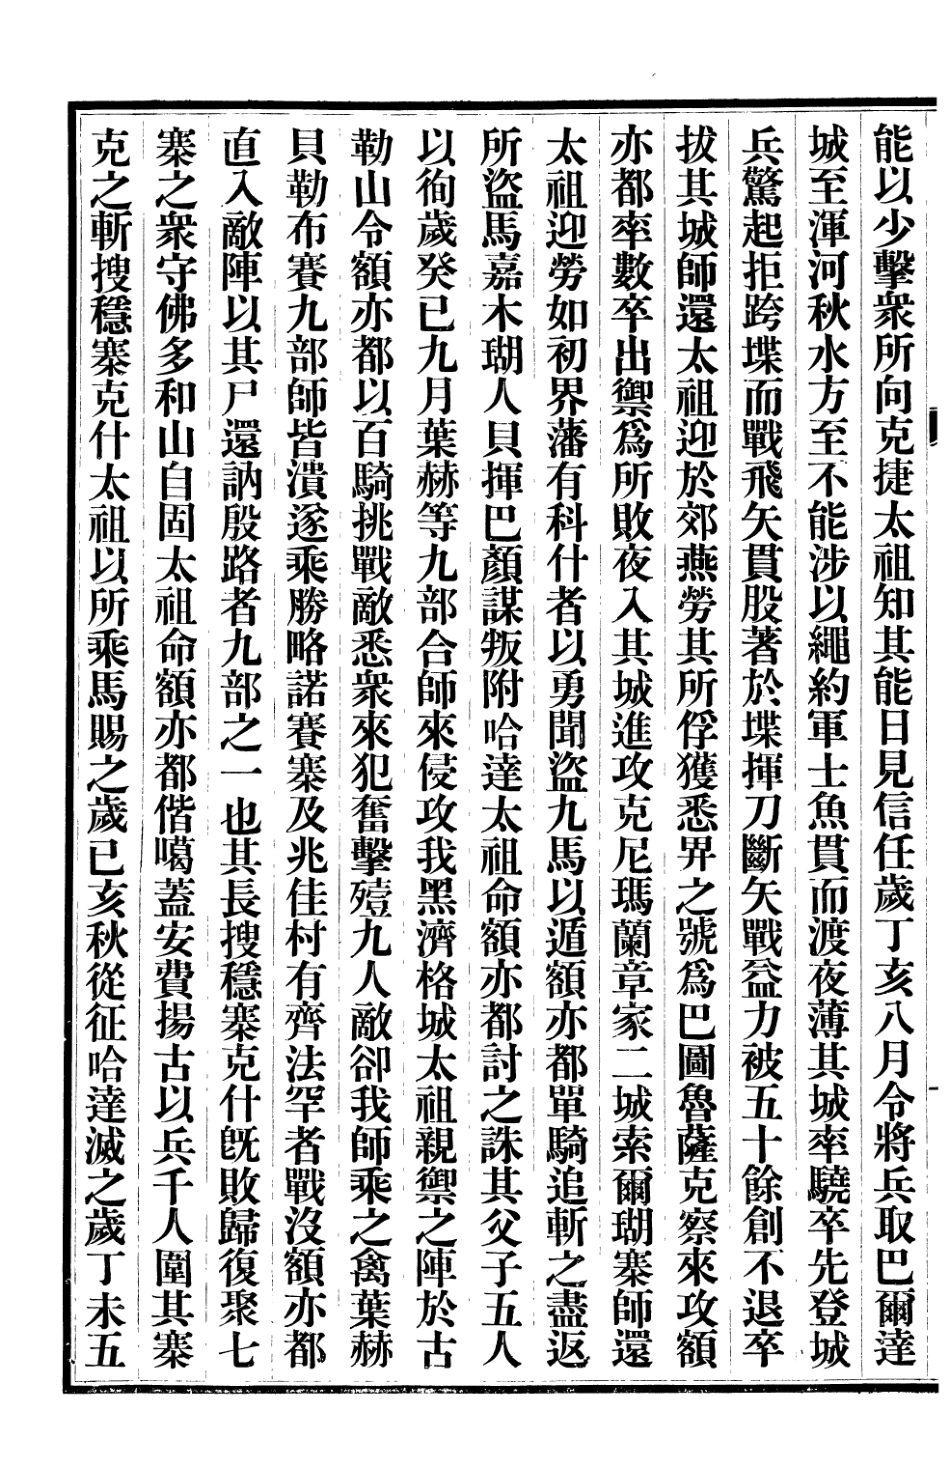 能以少擊衆所向克捷太祖知其能日見信任歲丁亥八月令將兵取巴爾達
城至渾河秋水方至不能涉以繩約軍士魚貫而渡夜薄其城率驍卒先登城
兵驚起拒跨堞而戰飛矢貫股著於堞揮刀斷矢戰益力被五十餘創不退卒
拔其城師還太祖迎於郊燕勞其所俘獲悉畀之號爲巴圖魯薩克察來攻額
亦都率數卒出禦爲所敗夜入其城進攻克尼瑪蘭章家二城索爾瑚寨師還
太祖迎勞如初界藩有科什者以勇聞盜九馬以遁額亦都單騎追斬之盡返
所盜馬嘉木瑚人貝揮巴顏謀叛附哈達太祖命額亦都討之誅其父子五人
以徇歲癸巳九月葉赫等九部合師來侵攻我黑濟格城太祖親禦之陣於古
勒山令額亦都以百騎挑戰敵悉衆來犯奮擊殪九人敵卻我師乘之禽葉赫
貝勒布賽九部師皆潰遂乘勝略諾賽寨及兆佳村有齊法罕者戰沒額亦都
直入敵陣以其尸還訥殷路者九部之一也其長搜穩寨克什旣敗歸復聚七
寨之衆守佛多和山自固太祖命額亦都偕噶蓋安費揚古以兵千人圍其寨
克之斬搜穩寨克什太祖以所乘馬賜之歲已亥秋從征哈達滅之歲丁未五